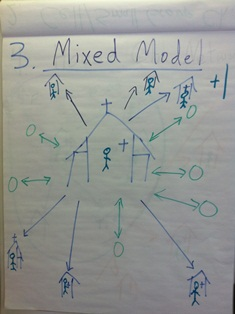 3. Mixed Model
+1